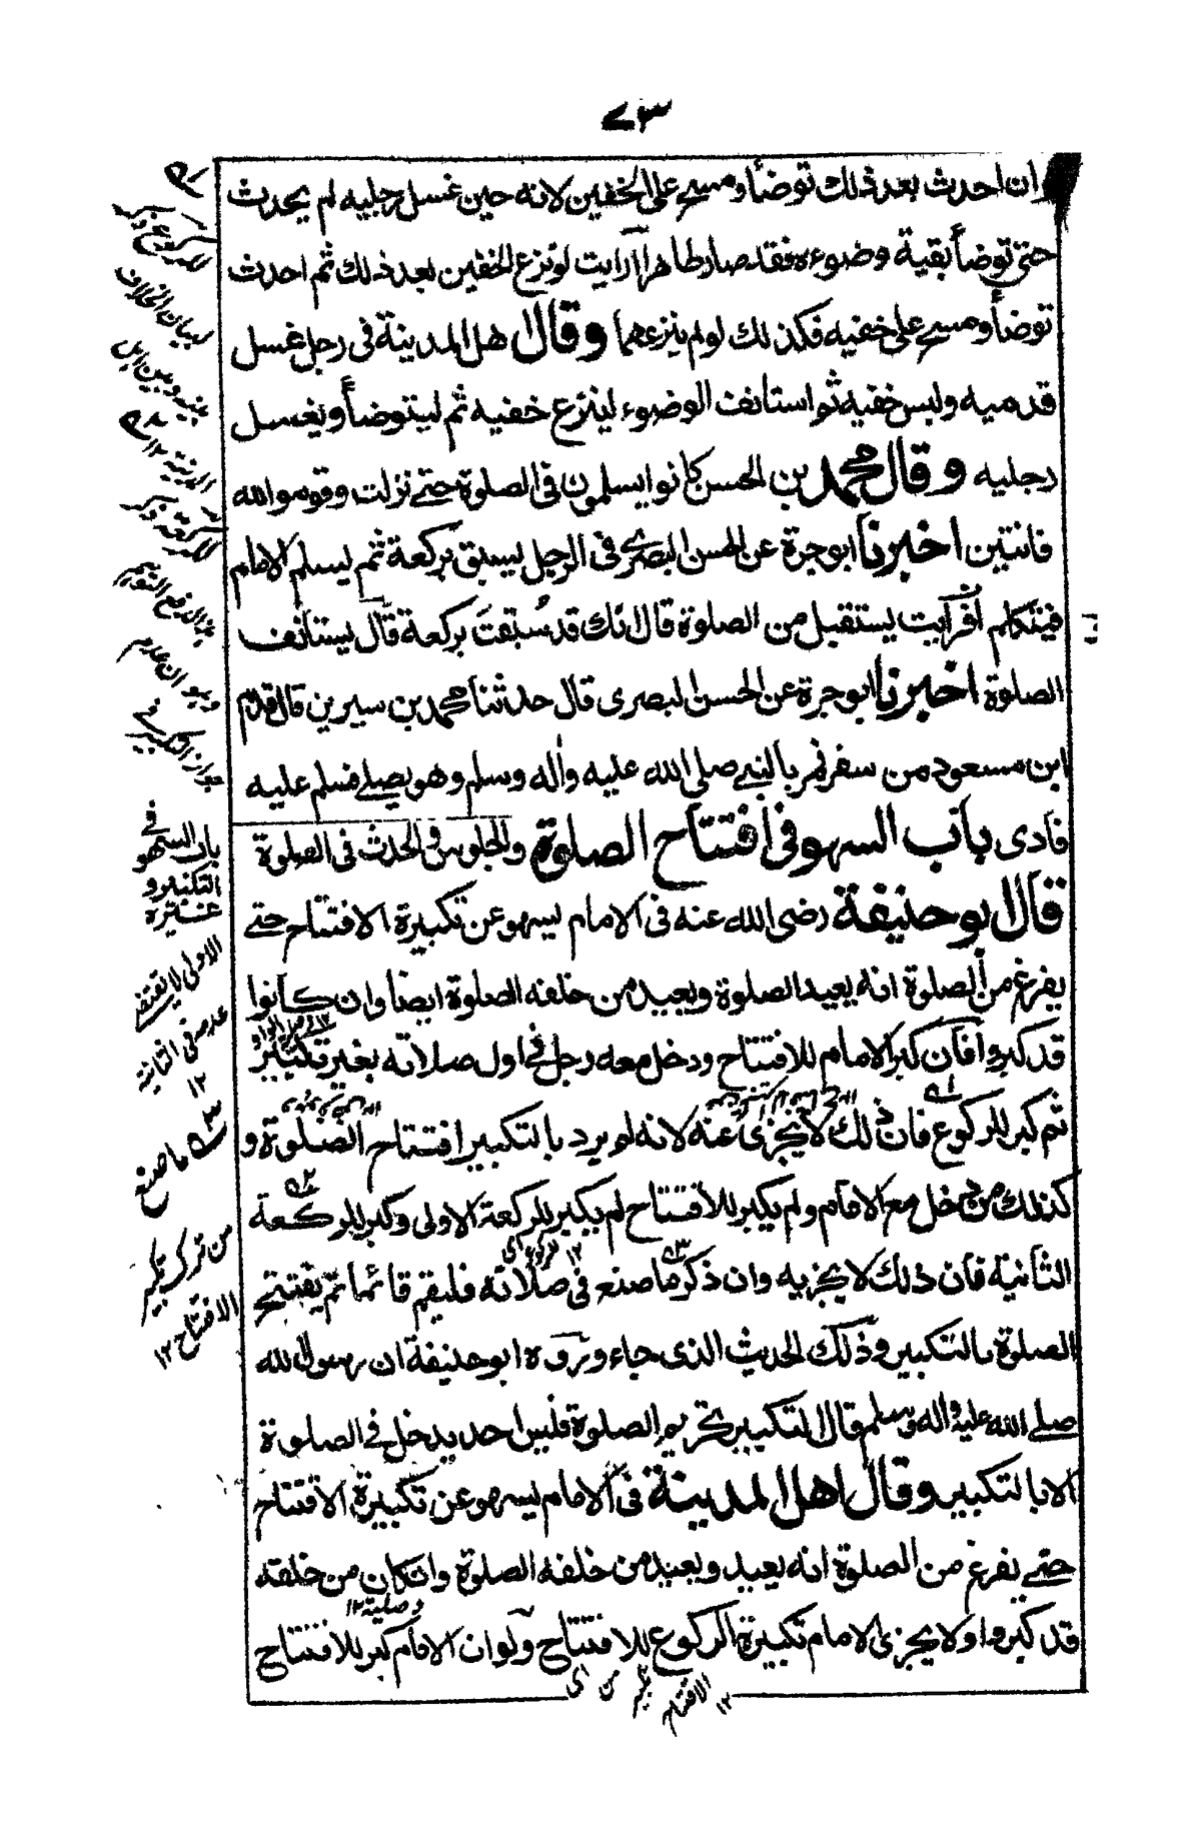 ٧٣
ان احدث بعد ذلك توضأ ومسح على الخفين لانه حين غسل رجليه لم يحدث
حتى توضأ بقية وضوءه فقد صار طاهرا ارايت لو نزع الخفين بعد ذلك ثم احدث
توضأ ومسح على خفيه فكذلك لو لم ينزعهما وقال اهل المدينة فى رجل غسل
قدميه ولبس خفيه ثم استانف الوضوء لينزع خفيه ثم ليتوضأ ويغسل
رجليه وقال محمد بن الحسن كانوا يسلمون فى الصلوة حتى نزلت وقوموا لله
قانتين اخبرنا ابو حرة عن الحسن البصرى فى الرجل يسبق بركعة ثم يسلم الامام
فيتكلم أفرأيت يستقبل من الصلوة قال انك قد سُبقتَ بركعة قال يستانف
الصلوة اخبرنا ابو حرة عن الحسن البصرى قال حدثنا محمد بن سيرين قال قدم
ابن مسعود من سفر فمر بالنبى صلى الله عليه وأله وسلم وهو يصلى فسلم عليه
فأدى باب السهو فى افتتاح الصلوة والجلوس والحدث فى الصلوة
قال ابو حنيفة رضى الله عنه فى الامام يسهو عن تكبيرة الافتتاح حتى
يفرغ من الصلوة انه يعيد الصلوة ويعيد من خلفه الصلوة ايضا وان كانوا
قد كبروا فان كبر الامام للافتتاح ودخل معه رجل فى اول صلاته بغير تكبير
ثم كبر للركوع فان ذلك لا يجزى عنه لانه لم يرد بالتكبير افتتاح الصلوة و
كذلك من دخل مع الامام ولم يكبر للافتتاح لم يكبر للركعة الاولى وكبر للركعة
الثانية فان ذلك لا يجزيه وان ذكر ما صنع فى صلاته فليقم قائما ثم يفتتح
الصلوة بالتكبير وذلك للحديث الذى جاء ورواه ابو حنيفة ان رسول الله
صلى الله عليه وأله وسلم قال التكبير تحريم الصلوة فليس احد يدخل فى الصلوة
الا بالتكبير وقال اهل المدينة فى الامام يسهو عن تكبيرة الافتتاح
حتى يفرغ من الصلوة انه يعيد ويعيد من خلفه الصلوة وان كان من خلفه
قد كبروا ولا يجزى الامام تكبيرة الركوع للافتتاح ولو ان الامام كبر للافتتاح
وصلية ١٢
للركوع
لبيان الخلاف
بينه وبين اهل
المدينة ١٢
باب السهو فى
التكبير و
غيره
الاولى لا يقتضى
عدمه فى الثانية
١٢
ما صنع
من ترك تكبير
الافتتاح ١٢